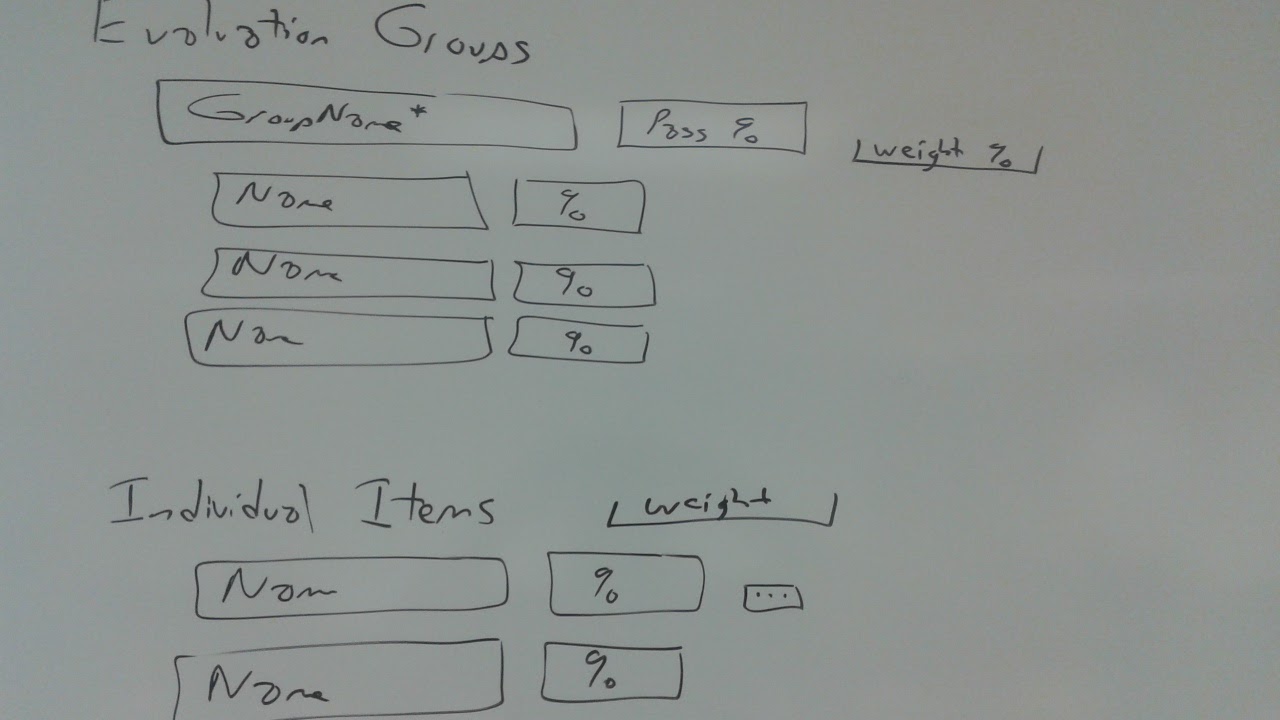 Evaluation Groups
GroupName* Pass % weight %
Name %
Name %
Name %
Individual Items weight
Name % ...
Name %